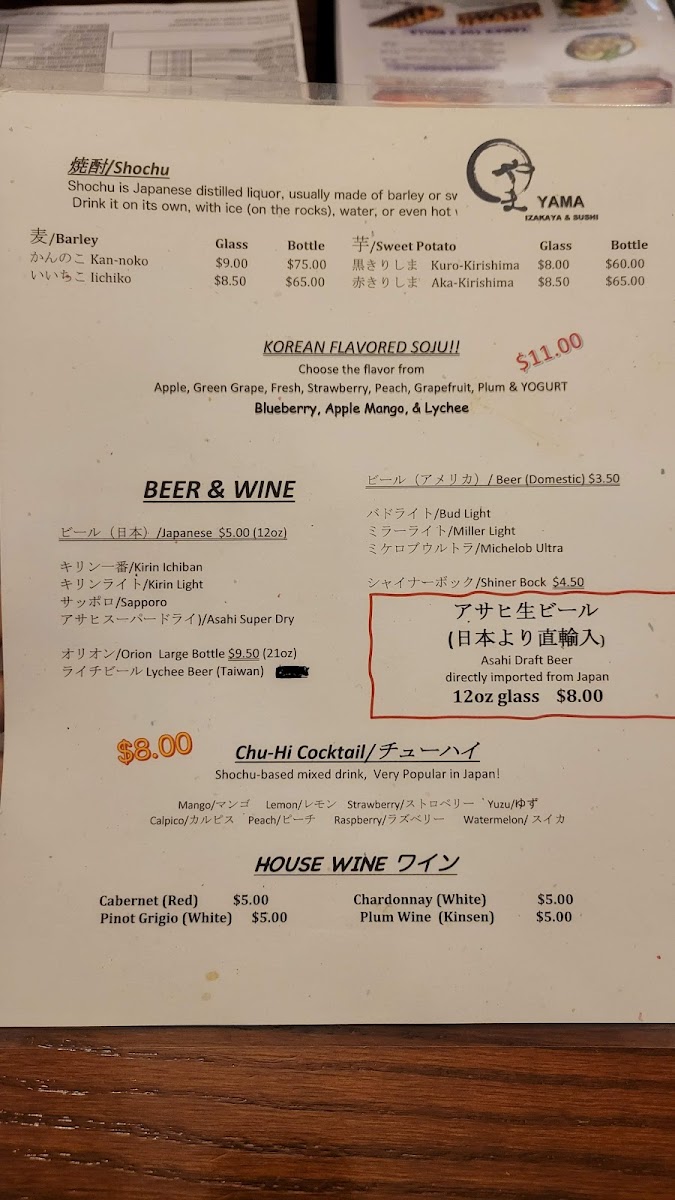 焼酎/Shochu
Shochu is Japanese distilled liquor, usually made of barley or sw
Drink it on its own, with ice (on the rocks), water, or even hot
やま
YAMA
IZAKAYA & SUSHI
麦/Barley Glass Bottle
かんのこ Kan-noko $9.00 $75.00
いいちこ Iichiko $8.50 $65.00
芋/Sweet Potato Glass Bottle
黒きりしま Kuro-Kirishima $8.00 $60.00
赤きりしま Aka-Kirishima $8.50 $65.00
KOREAN FLAVORED SOJU!!
$11.00
Choose the flavor from
Apple, Green Grape, Fresh, Strawberry, Peach, Grapefruit, Plum & YOGURT
Blueberry, Apple Mango, & Lychee
BEER & WINE
ビール（日本）/Japanese $5.00 (12oz)
キリン一番/Kirin Ichiban
キリンライト/Kirin Light
サッポロ/Sapporo
アサヒスーパードライ)/Asahi Super Dry
オリオン/Orion Large Bottle $9.50 (21oz)
ライチビール Lychee Beer (Taiwan)
ビール（アメリカ）/ Beer (Domestic) $3.50
バドライト/Bud Light
ミラーライト/Miller Light
ミケロブウルトラ/Michelob Ultra
シャイナーボック/Shiner Bock $4.50
アサヒ生ビール
(日本より直輸入)
Asahi Draft Beer
directly imported from Japan
12oz glass $8.00
$8.00
Chu-Hi Cocktail/チューハイ
Shochu-based mixed drink, Very Popular in Japan!
Mango/マンゴ Lemon/レモン Strawberry/ストロベリー Yuzu/ゆず
Calpico/カルピス Peach/ピーチ Raspberry/ラズベリー Watermelon/ スイカ
HOUSE WINE ワイン
Cabernet (Red) $5.00 Chardonnay (White) $5.00
Pinot Grigio (White) $5.00 Plum Wine (Kinsen) $5.00